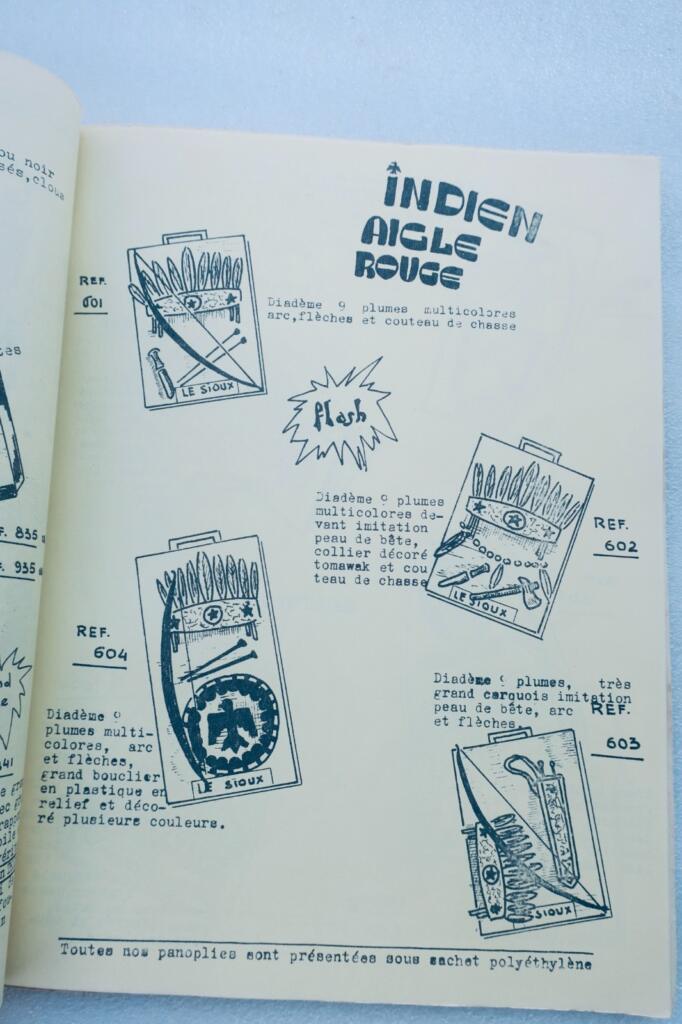 ou noir
sés, clous
INDIEN
AIGLE
ROUGE
REF.
601
Diadème 9 plumes multicolores
arc, flèches et couteau de chasse
LE SIOUX
flash
Diadème 9 plumes
multicolores de-
vant imitation
peau de bête,
collier décoré
tomawak et cou
teau de chasse
REF.
602
LE SIOUX
835
935
REF.
604
Diadème 9
plumes multi-
colores, arc
et flèches,
grand bouclier
en plastique en
relief et déco-
ré plusieurs couleurs.
LE SIOUX
Diadème 9 plumes, très
grand carquois imitation
peau de bête, arc
et flèches.
REF.
603
SIOUX
Toutes nos panoplies sont présentées sous sachet polyéthylène